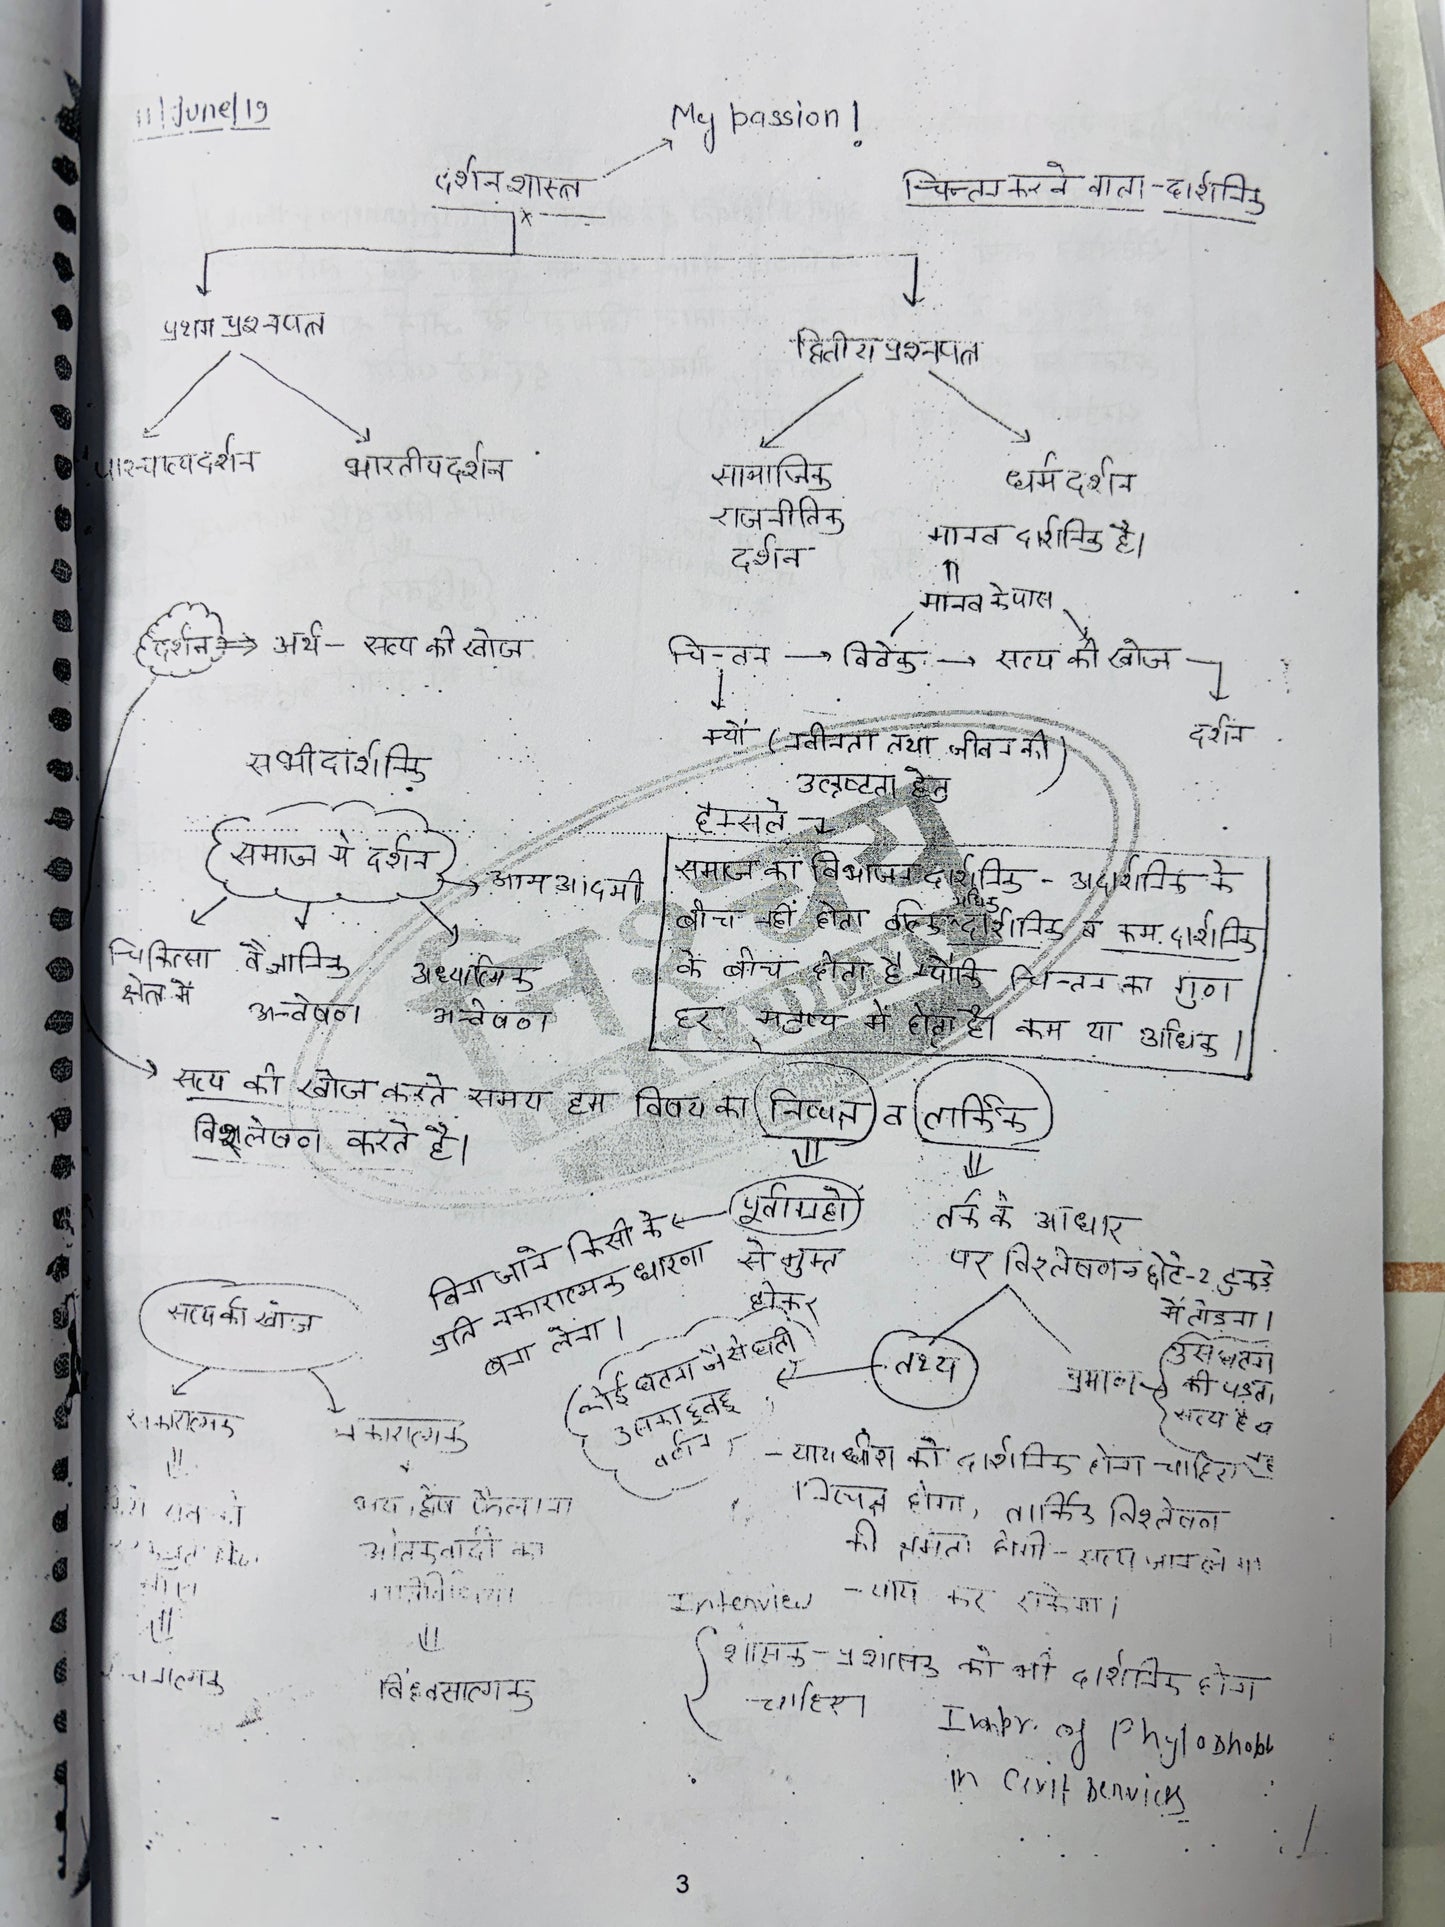 11/June/19
My passion!
दर्शन शास्त्र
चिन्तन करने वाला - दार्शनिक
प्रथम प्रश्नपत्र
द्वितीय प्रश्नपत्र
पाश्चात्य दर्शन
भारतीय दर्शन
सामाजिक
राजनीतिक
दर्शन
धर्म दर्शन
मानव दार्शनिक है।
मानव के पास
दर्शन ⇒ अर्थ - सत्य की खोज
चिन्तन → विवेक → सत्य की खोज
दर्शन
क्यों (नवीनता तथा जीवन की
उत्कृष्टता हेतु
सभी दार्शनिक
हक्सले
समाज में दर्शन
आम आदमी
समाज का विभाजन दार्शनिक - अदार्शनिक के
अधिक
बीच नहीं होता बल्कि दार्शनिक व कम दार्शनिक
के बीच होता है क्योंकि चिन्तन का गुण
हर मनुष्य में होता है। कम या अधिक।
चिकित्सा
क्षेत्र में
वैज्ञानिक
अन्वेषण
अध्यात्मिक
अन्वेषण
सत्य की खोज करते समय हम विषय का निष्पक्ष व तार्किक
विश्लेषण करते है।
पूर्वाग्रहों
से मुक्त
होकर
बिना जाने किसी के
प्रति नकारात्मक धारणा
बना लेना।
तर्क के आधार
पर विश्लेषण → छोटे-2 टुकड़े
में तोड़ना।
सत्य की खोज
तथ्य
कोई घटना जैसे घटी
उसका हूबहू
वर्णन
प्रमाण
उस घटना
की
सत्य है
सकारात्मक
नकारात्मक
भय, द्वेष फैलाना
आतंकवादी का
विध्वंसात्मक
न्यायधीश को दार्शनिक होना चाहिए
निष्पक्ष होगा, तार्किक विश्लेषण
की क्षमता होगी - सत्य जान लेगा
Interview
न्याय कर सकेगा।
शासक - प्रशासक को भी दार्शनिक होना
चाहिए।
Impr. of Phyloshoph
in Civil Services
3